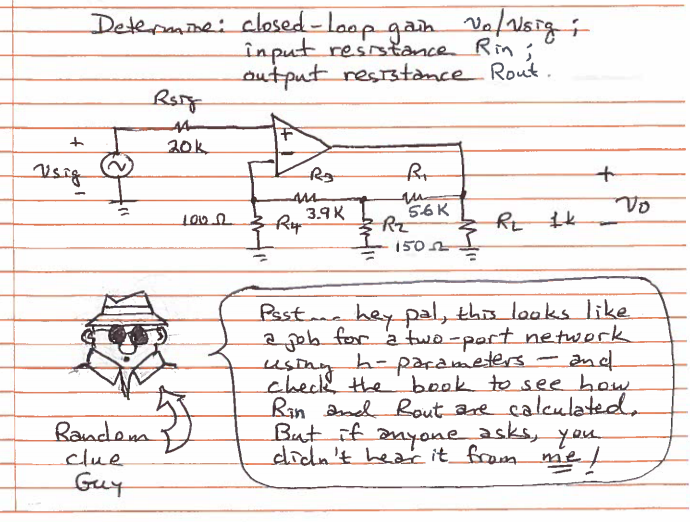 Determine: closed-loop gain vo/vsig;
input resistance Rin;
output resistance Rout.
Rsig
20k
+
vsig
-
+
-
R3
3.9K
R1
5.6K
100Ω
R4
R2
150Ω
RL
1k
+
vo
-
Psst... hey pal, this looks like
a job for a two-port network
using h-parameters — and
check the book to see how
Rin and Rout are calculated.
But if anyone asks, you
didn't hear it from me!
Random
clue
Guy